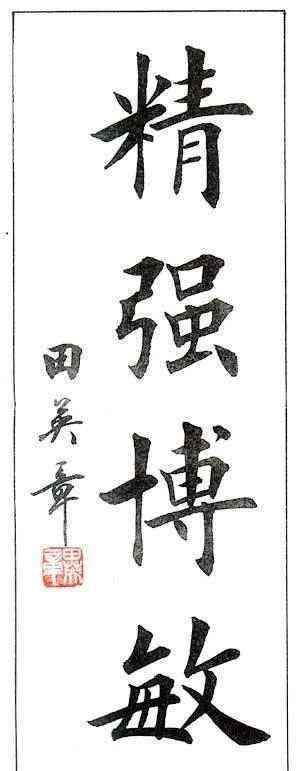 精强博敏
田英章